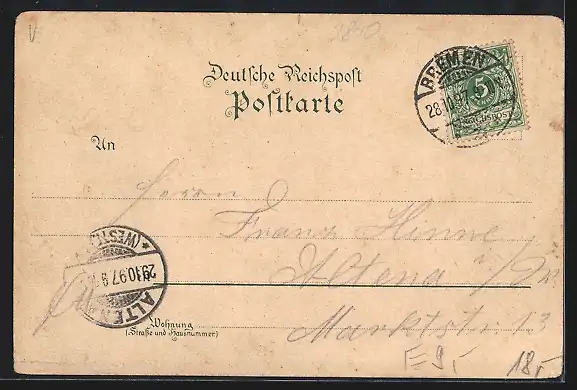 V
3810
Deutsche Reichspost
Postkarte
BREMEN
28.10.97
5
REICHSPOST
An
Herrn
Franz Hinne
Altena i/W.
Marktstr 13
(WESTF.)
29.10.97.8
ALTENA
Wohnung
(Straße und Hausnummer)
F=9,-
18,-